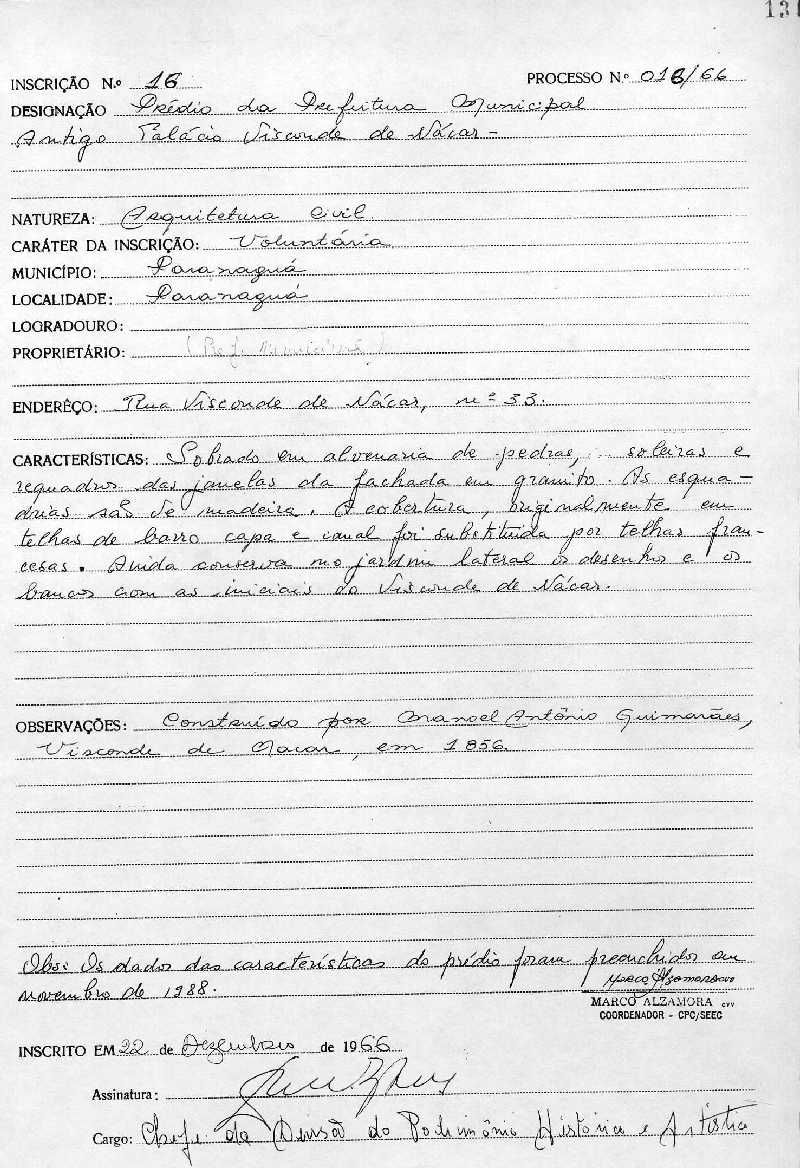 131
INSCRIÇÃO N.º 16 PROCESSO N.º 016/66
DESIGNAÇÃO Prédio da Prefeitura Municipal
Antigo Palácio Visconde de Nácar -
NATUREZA: Arquitetura Civil
CARÁTER DA INSCRIÇÃO: Voluntária
MUNICÍPIO: Paranaguá
LOCALIDADE: Paranaguá
LOGRADOURO:
PROPRIETÁRIO: (Pref. Municipal)
ENDERÊÇO: Rua Visconde de Nácar, nº 33.
CARACTERÍSTICAS: Sobrado em alvenaria de pedras, soleiras e
requadros das janelas da fachada em granito. As esqua-
drias são de madeira. A cobertura, originalmente em
telhas de barro capa e canal foi substituída por telhas fran-
cesas. Ainda conserva no jardim lateral os desenhos e os
bancos com as iniciais do Visconde de Nácar.
OBSERVAÇÕES: Construído por Manoel Antônio Guimarães,
Visconde de Nacar, em 1856.
Obs: Os dados das características do prédio foram preenchidos em
novembro de 1988.
MARCO ALZAMORA
COORDENADOR - CPC/SEEC
INSCRITO EM 22 de Dezembro de 1966
Assinatura:
Cargo: Chefe da Divisão do Patrimônio Histórico e Artístico